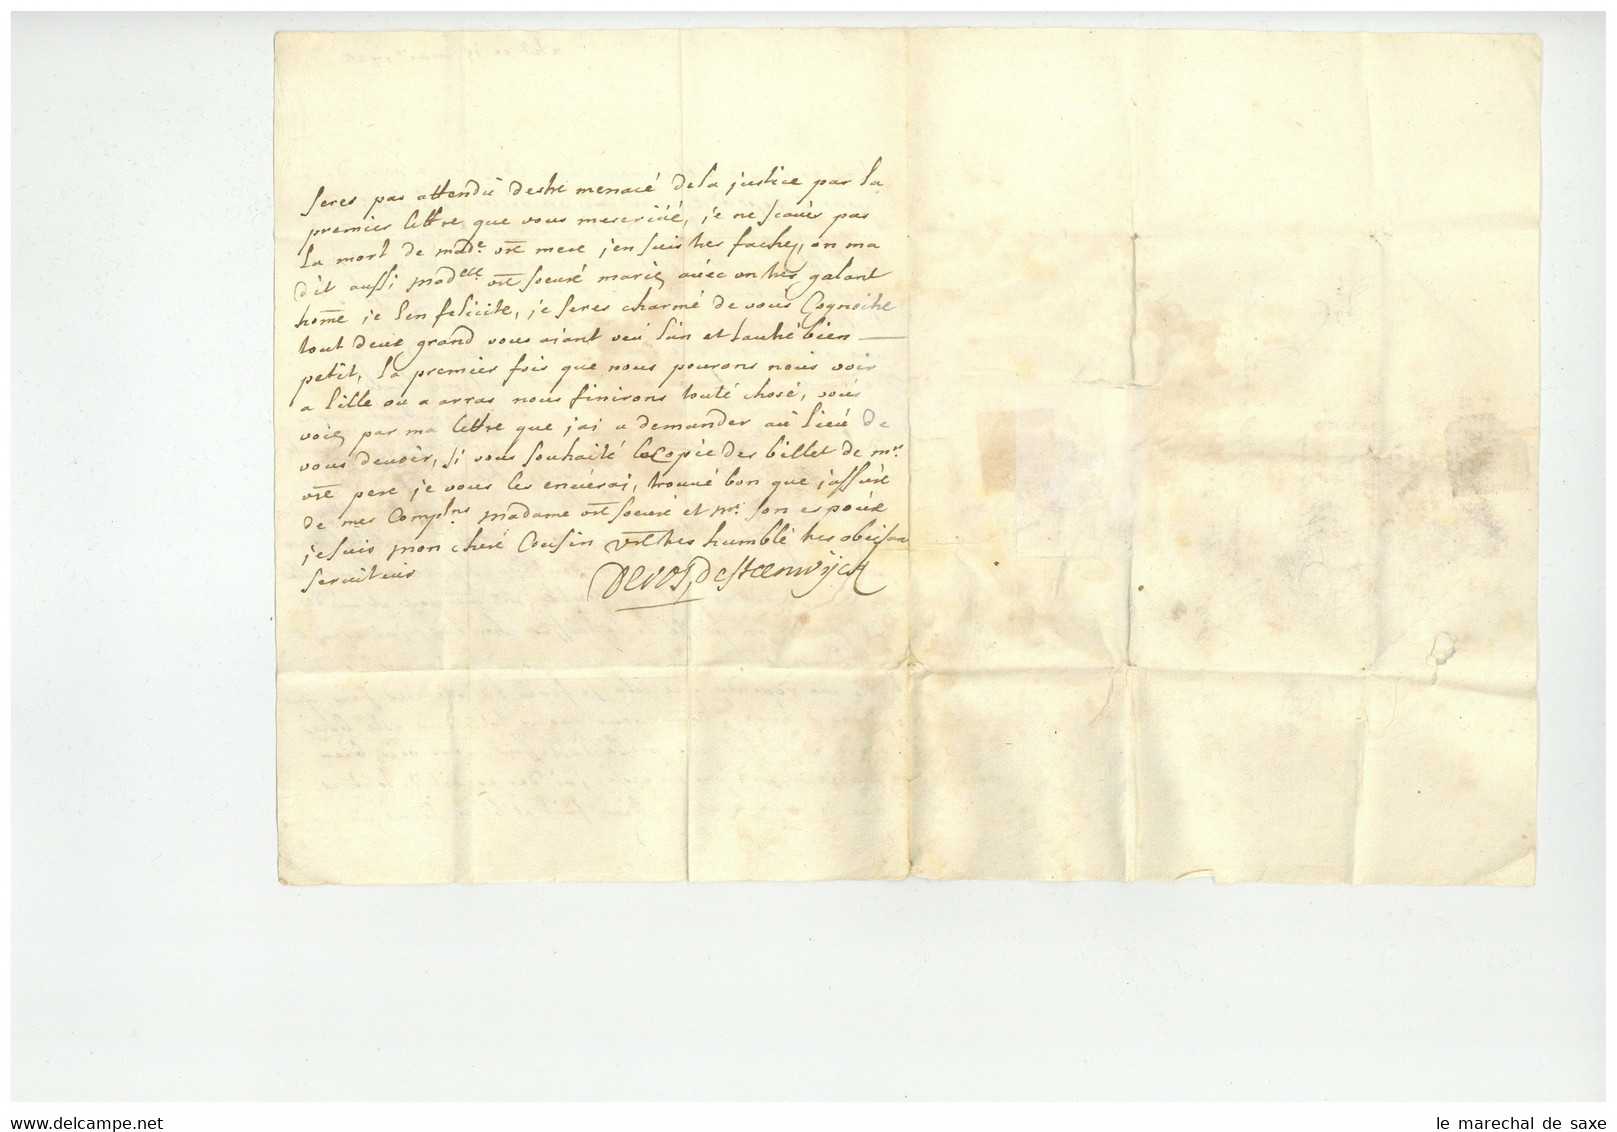 seres pas attendu destre menacé de la justice par la
premier lettre que vous mescrivé, je ne scavès pas
la mort de made. vre mere j'en suis tres fachez, on ma
dit aussi madelle. vre soeuré mariez avéc un tres galant
home je l'en felicite, je seres charmé de vous Cognoitre
tout deux grand vous aiant veu l'un et lautré bien
petit, la premier fois que nous pourons nous voir
a lille ou a arras nous finirons touté chosé, voús
voiez par ma lettre que j'ai a demander aú lieú de
vous devoir, si vous souhaité la Copie des billet de mr.
vre pere je vous les envérai, trouvé bon que j'assúre
de mes Complns. madame vre soeuré et mr. son espoúx
je suis mon cheré Cousin vre tres humblé tres obeisan
serviteur
Devos, de steenwÿck
le marechal de saxe